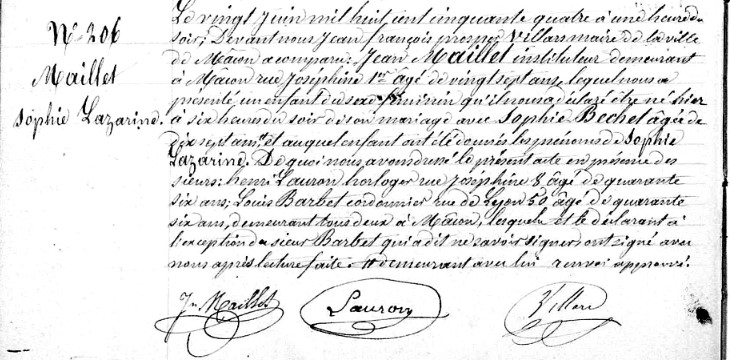 N° 206
Maillet
Sophie Lazarine.
Le vingt Juin mil huit cent cinquante quatre à une heure du
soir; Devant nous Jean françois prosper Villars maire de la ville
de Mâcon a comparu Jean Maillet instituteur demeurant
à Mâcon rue Joséphine 1er âgé de vingt sept ans, lequel nous a
présenté un enfant du sexe féminin qu'il nous a déclaré être né hier
à six heures du soir de son mariage avec Sophie Bechet âgée de
dix sept ans # et auquel enfant ont été donnés les prénoms de Sophie
Lazarine. De quoi nous avons dressé le présent acte en présence des
sieurs: henri Lauron horloger rue Joséphine 8 âgé de quarante
six ans; Louis Barbet cordonnier rue de Lyon 50 âgé de quarante
six ans, demeurant tous deux à Mâcon, lesquels et le déclarant à
l'exception du sieur Barbet qui a dit ne savoir signer ont signé avec
nous après lecture faite # demeurant avec lui renvoi approuvé.
Jn Maillet
Lauron
Villars